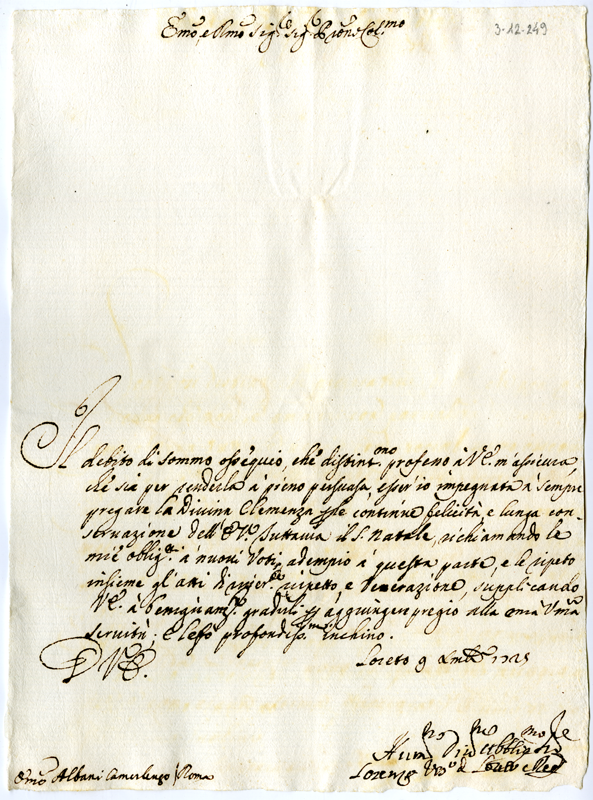 Emo, e Rmo Sig.r Sig.r Prone Col.mo
3-12-249
Il debito di sommo ossequio, che distint.mo professo à V.E. m'assicura,
che sia per renderla à pieno persuasa, esser'io impegnata à sempre
pregare la Divina Clemenza per le continue felicità, e lunga con-
servazione dell'E.V. Tuttavia il S. Natale, richiamando le
mie oblig.ni à nuovi Voti, adempio à questa parte, e le ripeto
insieme gl'atti di rispetto, e Venerazione, supplicando
V.E. à benignam.te gradirli per aggiunger pregio alla mia Uma
servitù; e le fo profondiss.mo inchino.
D.V.E.
Loreto 9 Xmbre 1725
Emo Albani Camerlengo / Roma
Lorenzo Vvo di Loreto e